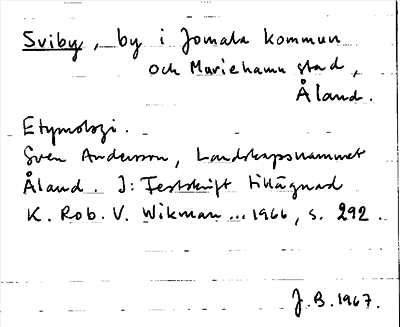 Sviby, by i Jomala kommun
och Mariehamn stad,
Åland.
Etymologi.
Sven Andersson, Landskapsnamnet
Åland. I: Festskrift tillägnad
K. Rob. V. Wikman ... 1966, s. 292.
J.B. 1967.